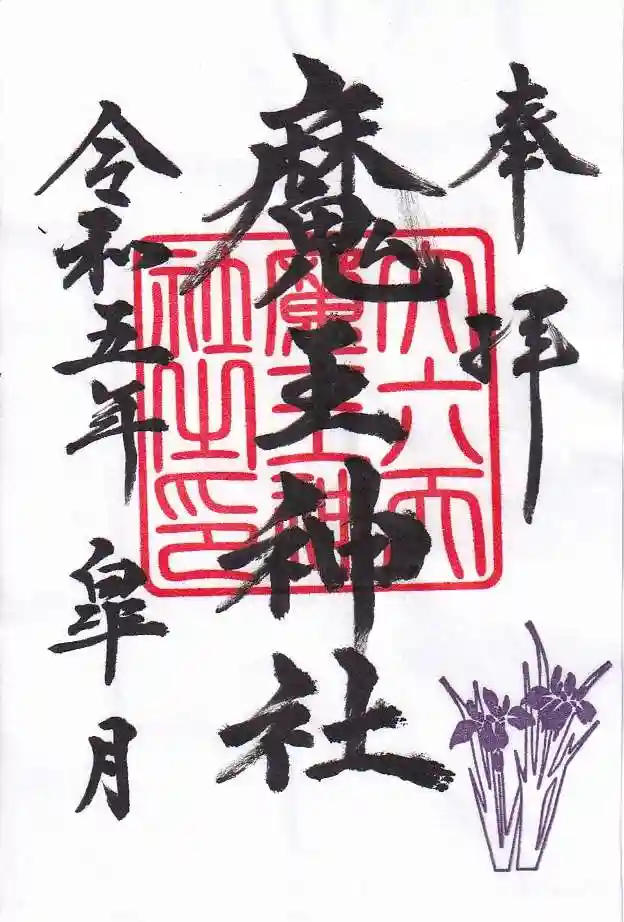 奉拝
魔王神社
令和五年 皐月
大六天
魔王神
社之印